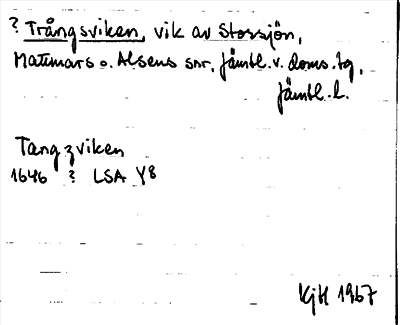 ? Trångsviken, vik av Storsjön,
Mattmars o. Alsens snr, Jämtl. v. doms. tg,
Jämtl. l.
Tangzviken
1646 ? LSA Y8
KjH 1967